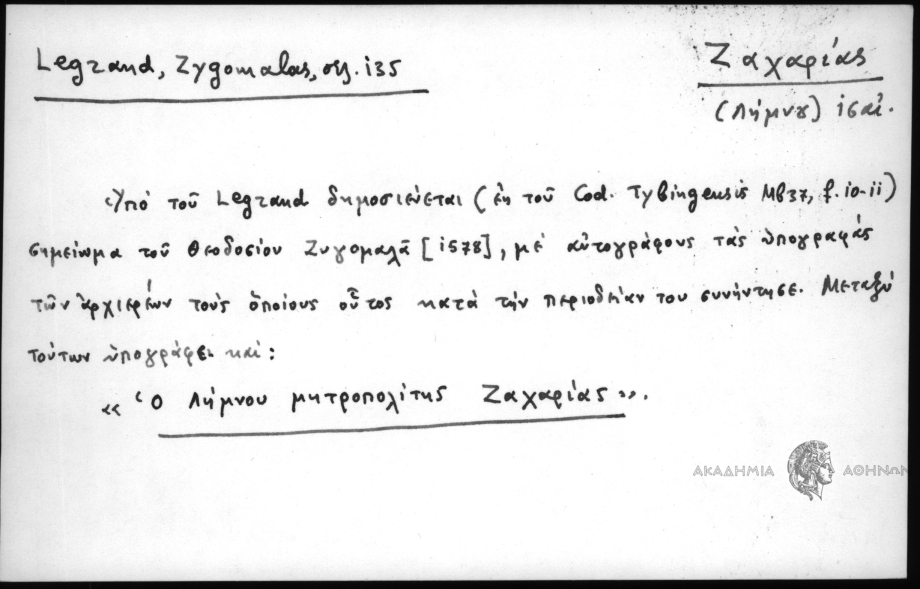 Legrand, Zygomalas, σελ. 135
Ζαχαρίας
(Λήμνου) ις αἰ.
Ὑπὸ τοῦ Legrand δημοσιεύεται (ἐκ τοῦ Cod. Tybingensis Mb37, f. 10-11)
σημείωμα τοῦ Θεοδοσίου Ζυγομαλᾶ [1578], μὲ αὐτογράφους τὰς ὑπογραφὰς
τῶν ἀρχιερέων τοὺς ὁποίους οὗτος κατὰ τὴν περιοδείαν του συνήντησε. Μεταξὺ
τούτων ὑπογράφει καί:
« Ὁ Λήμνου μητροπολίτης Ζαχαρίας ».
ΑΚΑΔΗΜΙΑ ΑΘΗΝΩΝ